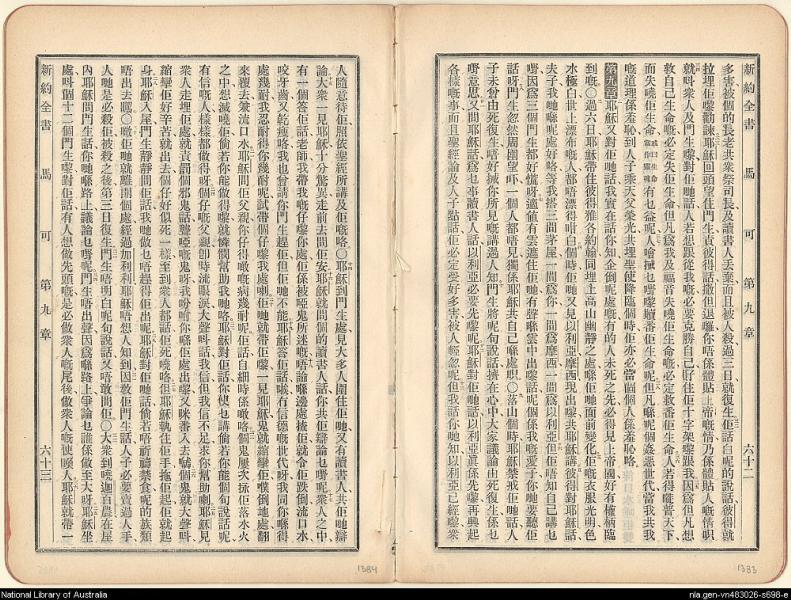 新約全書 馬可 第九章 六十二
多害被個的長老共衆祭司長及讀書人丟棄而且被人殺過三日就復生佢話白呢的說話彼得就
拉埋佢嚟勸諫耶穌回頭望住門生責彼得話撒但退嚟你唔係體貼上帝嘅情乃係體貼人嘅情呌
就呌衆人及門生嚟對佢哋話人若想跟從我嘅必要克勝自己孭住佢十字架嚟跟我因爲但凡想
救自己生命嘅必定失佢生命但凡爲我及福音失曉佢生命嘅必定救番佢生命人若得嚨普天下
而失曉佢生命 有乜益呢人喻㨂乜嘢嚟贖番佢生命呢但凡喺呢個姦惡世代當我共我
嘅道理係羞恥到人子乘天父榮光共埋聖使降臨個時佢亦必當個個人係羞恥咯
第九章 耶穌又對佢哋話我實在話你知企倒呢處嘅有的人未死之先必得見上帝國好有權柄臨
到嘅〇過六日耶穌帶住彼得雅各約翰同埋上高山幽靜之處喺佢哋面前變化佢嘅衣服光明色
水極白世上漂布嘅人都唔漂得咁白個時佢哋又見以利亞摩西現出嚟共耶穌講彼得對耶穌話
夫子我哋喺呢處好咯等我搭三間茅屋一間爲你一間爲摩西一間爲以利亞但佢唔知自己講乜
嘢因爲三個門生都好慌嘅適値有雲遮住佢哋有聲喺雲中出嚟話呢個係我嘅愛子你哋要聽佢
話呀門生忽然周圍望吓一個人都唔見獨係耶穌共自己喺處呮〇落山個時耶穌禁戒佢哋話人
子未曾由死復生唔好㨢你所見嘅講過人知門生將呢句說話擠在心中大家議論由死復生係乜
嘢意思又問耶穌話讀書人話以利亞必要先嚟呢耶穌對佢哋話以利亞眞係先嚟再興起
各樣嘅事而且聖經論及人子點話佢必定受好多害被人輕忽呢但我話你哋知以利亞已經嚟嘹
人隨意待佢照依聖經所講及佢嘅咯〇耶穌到門生處見大多人圍住佢哋又有讀書人共佢哋辯
論大衆一見耶穌十分驚異走前去問佢安耶穌就問個的讀書人話你共佢辯論乜嘢呢衆人之中
有一個答佢話老師我帶我仔嚟你處佢係被啞鬼所迷嘅唔論喺邊處捉佢就令佢跌倒流口水
咬牙齒又乾瘦咯我也曾請你門生趕佢但佢哋不能耶穌答佢話㗎冇信德嘅世代呀我同你喺得
處幾耐我忍耐得你幾耐呢試帶個仔嚟我處喇佢哋就帶佢嚟一見耶穌鬼就縮攣佢噗倒地處翻
來覆去兼流口水耶穌問佢父親你仔得噉嘅病幾耐呢佢話自細時係噉咯個鬼屢次㨢佢落水火
之中想滅曉佢倘若你能做得嚟就憐憫幫助我哋咯耶穌對佢話你使乜講倘若你能個句說話呢
有信嘅人樣樣都做得呀個仔嘅父親卽時流眼淚大聲呌話我信但我信不足求你幫助喇耶穌見
衆人走埋佢處就責罰個邪鬼話聾啞嘅鬼呀我吩咐你喺佢處出嚟又咪番入去嚹個鬼就大聲呌
縮攣佢好辛苦就出去個仔好似死一樣至到衆人都話佢死曉咯但耶穌執住佢手拖佢起佢就起
身耶穌入屋門生靜靜問佢話我哋做乜唔趕得佢出呢耶穌對佢哋話倘若唔祈禱禁食呢的族類
唔出去嘅〇噉佢哋就離開個處經過加利利耶穌唔想人知到因教佢門生話人子必要賣過人手
人哋是必殺佢被殺之後第三日復生門生唔明白呢句說話又唔敢問佢〇大衆到嘵迦百農在屋
內耶穌問門生話你哋喺路上議論乜嘢呢門生唔出聲因爲喺路上爭論乜誰係做至大呀耶穌坐
處呌個十二個門生嚟對佢話有人想做先頭嘅是必做衆人嘅尾後做衆人嘅使喚人耶穌就帶一
新約全書 馬可 第九章 六十三
1384
1383
National Library of Australia
nla.gen-vn483026-s698-e